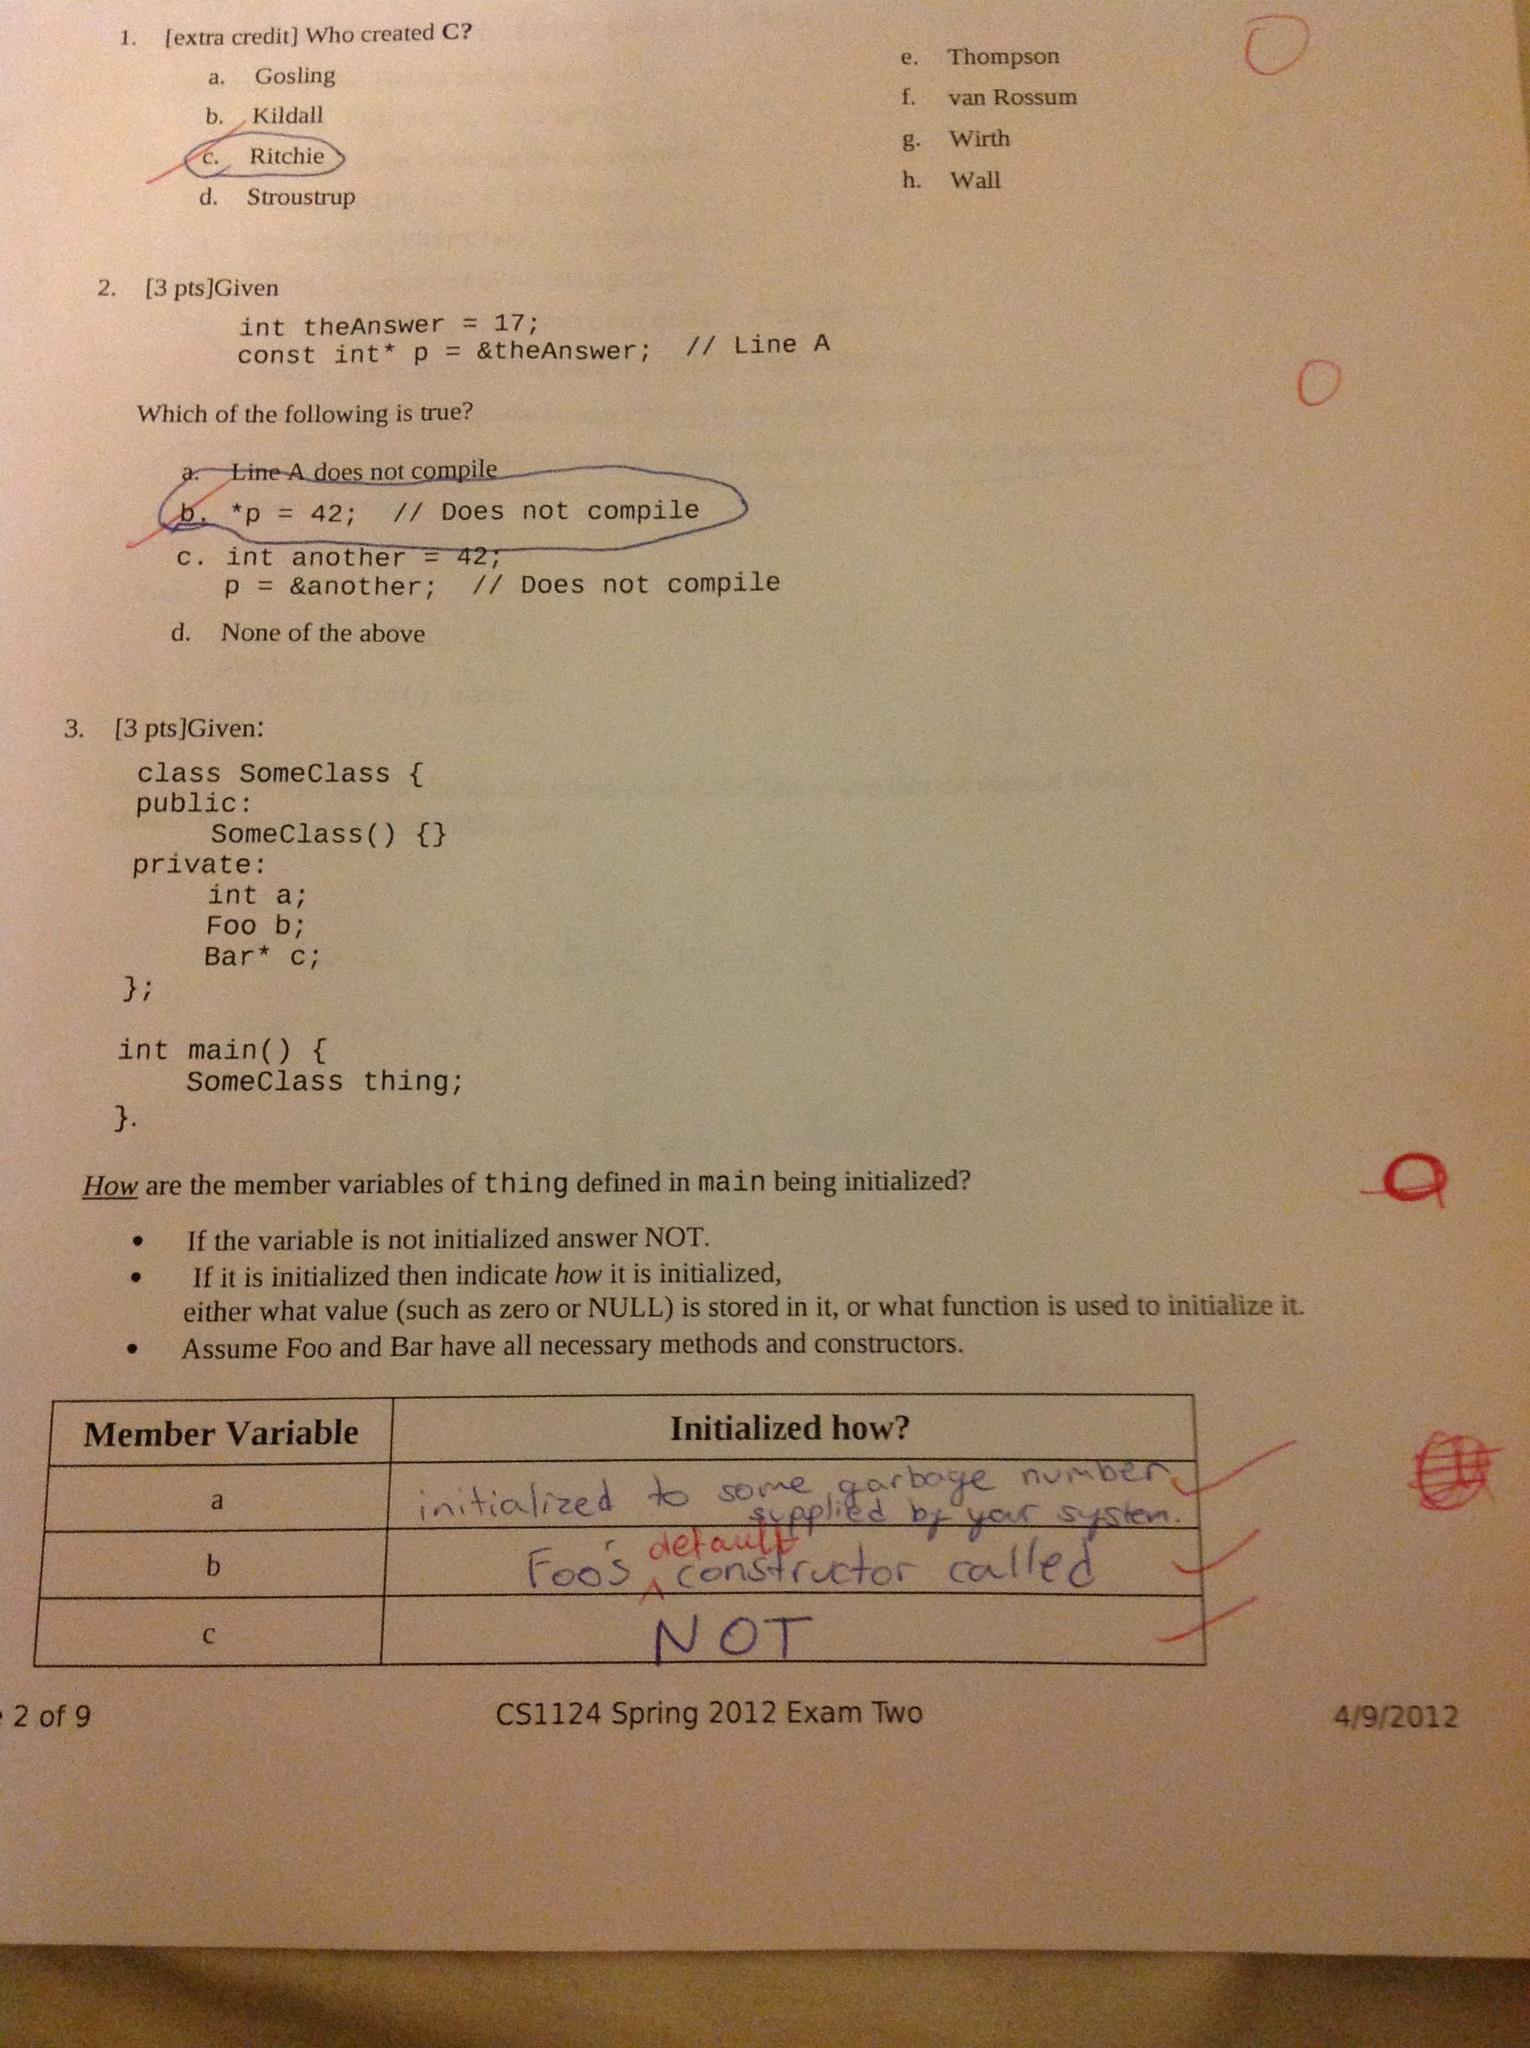 1. [extra credit] Who created C?
a. Gosling
b. Kildall
c. Ritchie
d. Stroustrup
e. Thompson
f. van Rossum
g. Wirth
h. Wall
2. [3 pts]Given
int theAnswer = 17;
const int* p = &theAnswer; // Line A
Which of the following is true?
a. Line A does not compile
b. *p = 42; // Does not compile
c. int another = 42;
p = &another; // Does not compile
d. None of the above
3. [3 pts]Given:
class SomeClass {
public:
SomeClass() {}
private:
int a;
Foo b;
Bar* c;
};
int main() {
SomeClass thing;
}.
How are the member variables of thing defined in main being initialized?
• If the variable is not initialized answer NOT.
• If it is initialized then indicate how it is initialized,
either what value (such as zero or NULL) is stored in it, or what function is used to initialize it.
• Assume Foo and Bar have all necessary methods and constructors.
Member Variable Initialized how?
a initialized to some garbage number
supplied by your system.
default
b Foo's constructor called
c NOT
2 of 9 CS1124 Spring 2012 Exam Two 4/9/2012